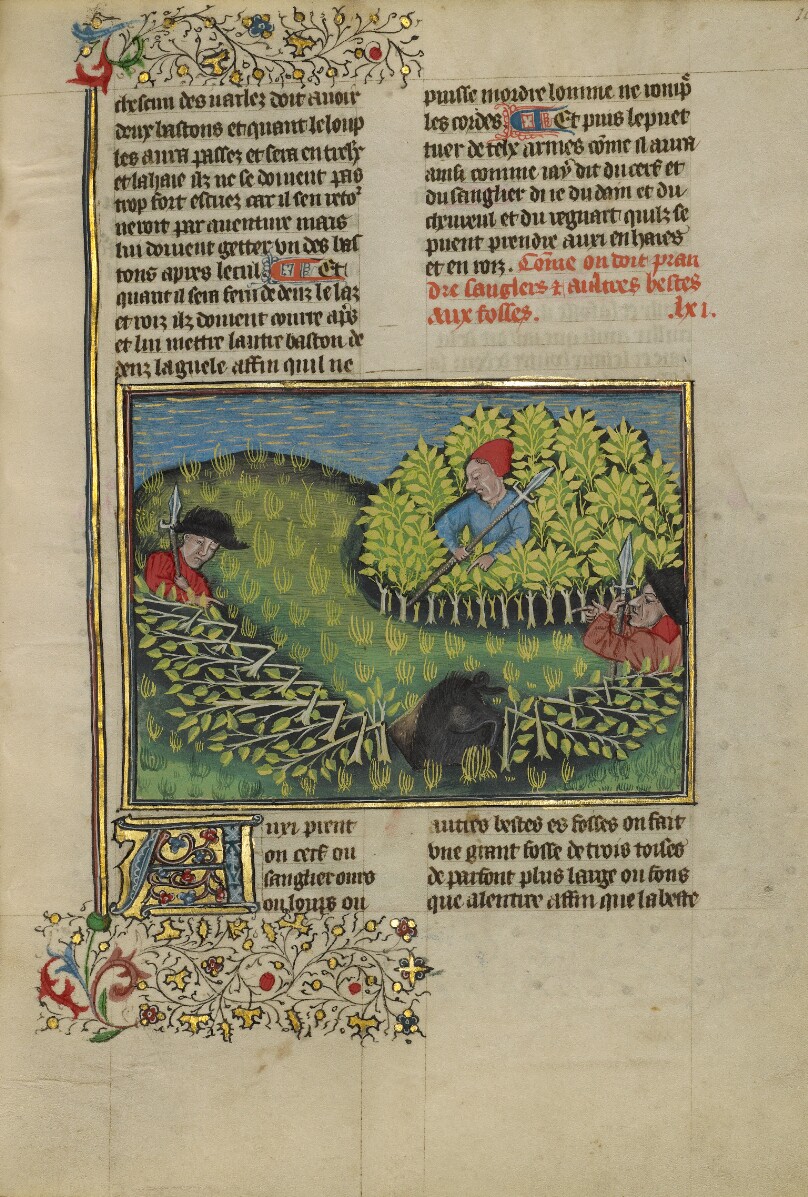 chascun des varlez doit auoir
deux bastons et quant le loup
les aura passez et sera entrelx
et la haie ilz ne se doiuent pas
trop fort escuez car il sen reto
neroit par auenture mais
lui doiuent getter vn des bas
tons apres le cul Et
quant il sera feru dedenz le laz
et roiz ilz doiuent courre aps
et lui mettre lautre baston de
denz la guele affin quil ne
puisse mordre lomme ne romp
les cordes Et puis le puet
tuer de telx armes cōme il aura
ainsi comme iay dit du cerf et
du sanglier di ie du dain et du
cheureul et du regnart quilz se
puent prendre auxi en haies
et en roiz. Cōme on doit pran
dre sangliers et aultres bestes
aux fosses. .lxi.
Auxi prent
on cerf ou
sanglier ours
ou loups ou
autres bestes es fosses on fait
vne grant fosse de trois toises
de parfont plus large ou fons
que a lentree affin que la beste